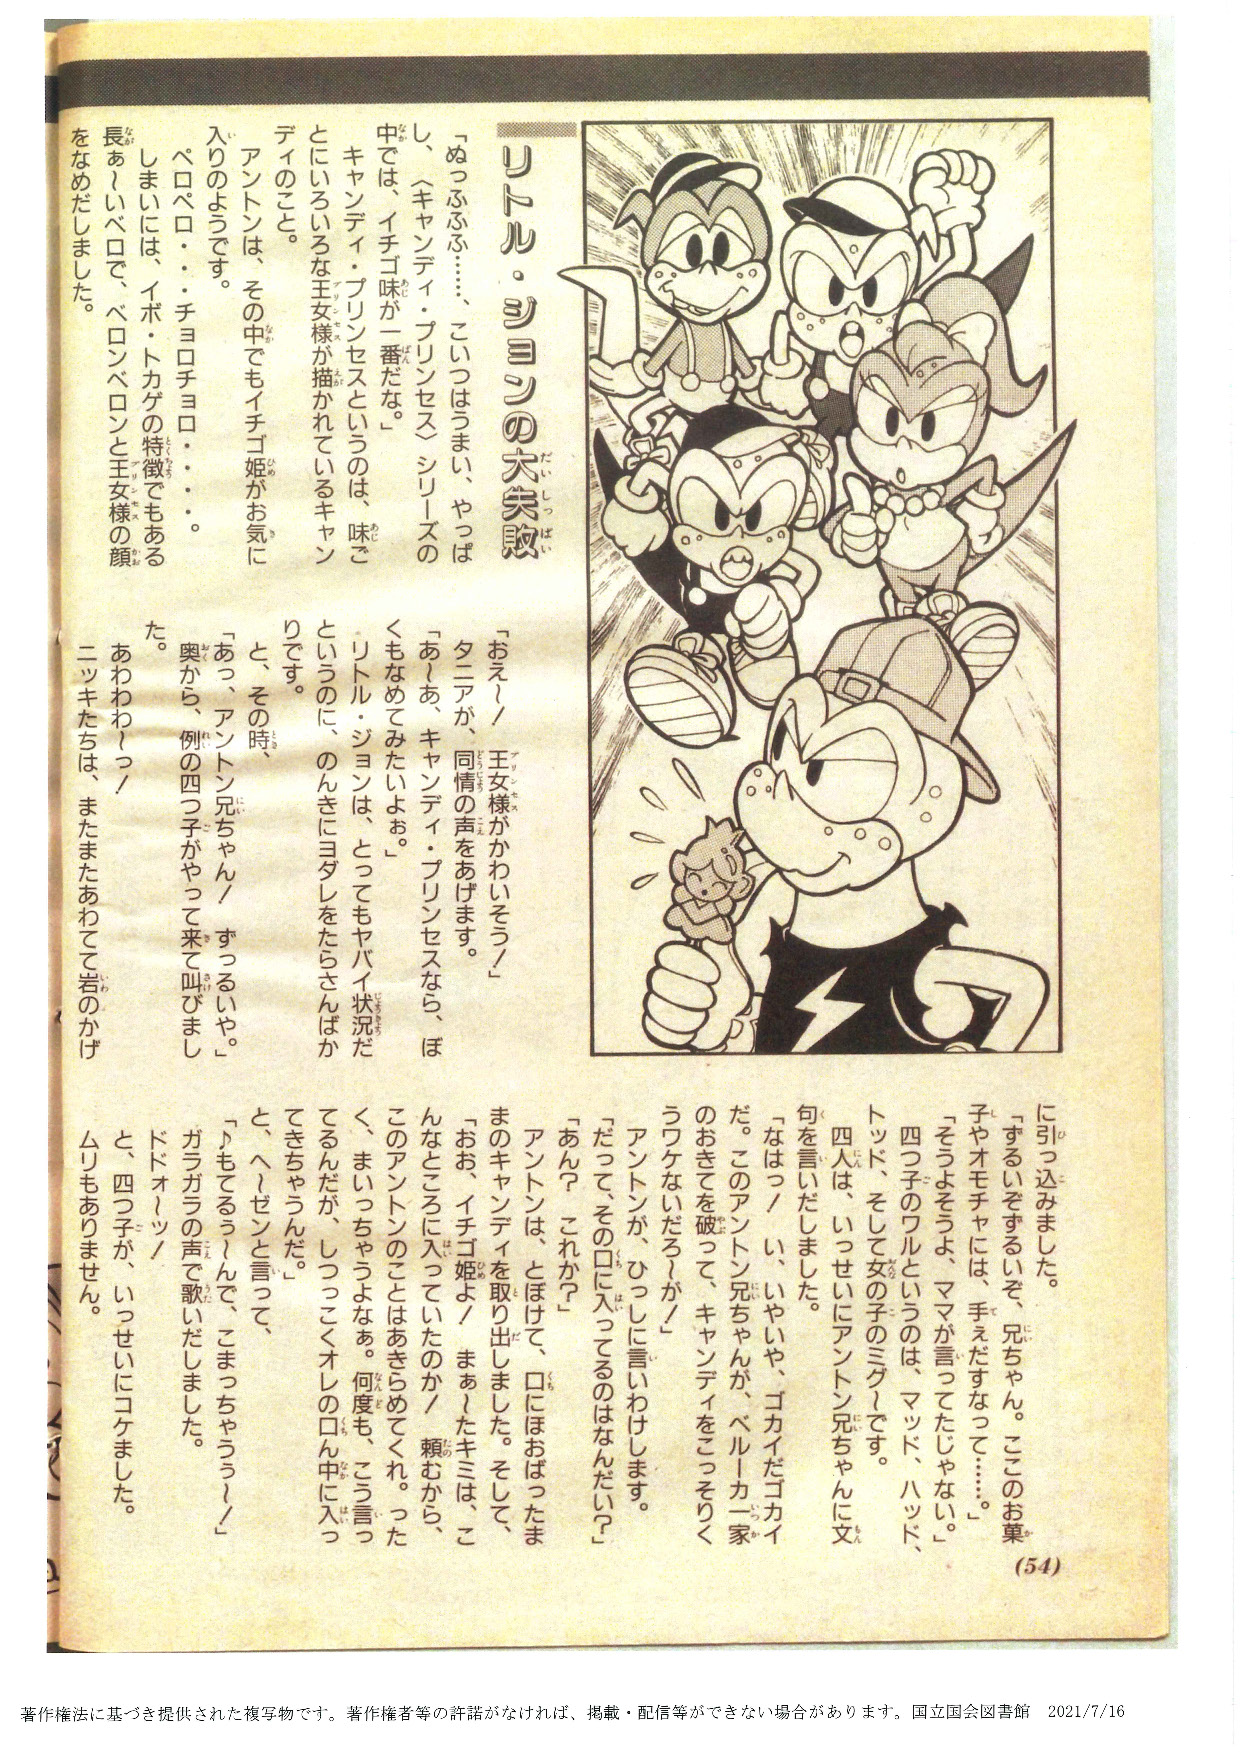 リトル・ジョンの大失敗
「ぬっふふふ……、こいつはうまい、やっぱ
し、〈キャンディ・プリンセス〉シリーズの
中では、イチゴ味が一番だな。」
キャンディ・プリンセスというのは、味ご
とにいろいろな王女様が描かれているキャン
ディのこと。
アントンは、その中でもイチゴ姫がお気に
入りのようです。
ペロペロ・・・チョロチョロ・・・・・。
しまいには、イボ・トカゲの特徴でもある
長ぁ〜いベロで、ベロンベロンと王女様の顔
をなめだしました。
「おえ〜！　王女様がかわいそう！」
タニアが、同情の声をあげます。
「あ〜あ、キャンディ・プリンセスなら、ぼ
くもなめてみたいよぉ。」
リトル・ジョンは、とってもヤバイ状況だ
というのに、のんきにヨダレをたらさんばか
りです。
と、その時、
「あっ、アントン兄ちゃん！　ずっるいや。」
奥から、例の四つ子がやって来て叫びまし
た。
あわわわ〜っ！
ニッキたちは、またまたあわてて岩のかげ
に引っ込みました。
「ずるいぞずるいぞ、兄ちゃん。ここのお菓
子やオモチャには、手ぇだすなって……。」
「そうよそうよ、ママが言ってたじゃない。」
四つ子のワルというのは、マッド、ハッド、
トッド、そして女の子のミグ〜です。
四人は、いっせいにアントン兄ちゃんに文
句を言いだしました。
「なはっ！　い、いやいや、ゴカイだゴカイ
だ。このアントン兄ちゃんが、ベルーカ一家
のおきてを破って、キャンディをこっそりく
うワケないだろ〜が！」
アントンが、ひっしに言いわけします。
「だって、その口に入ってるのはなんだい？」
「あん？　これか？」
アントンは、とぼけて、口にほおばったま
まのキャンディを取り出しました。そして、
「おお、イチゴ姫よ！　まぁ〜たキミは、こ
んなところに入っていたのか！　頼むから、
このアントンのことはあきらめてくれ。った
く、まいっちゃうよなぁ。何度も、こう言っ
てるんだが、しつっこくオレの口ん中に入っ
てきちゃうんだ。」
と、ヘ〜ゼンと言って、
「♪もてるぅ〜んで、こまっちゃうぅ〜！」
ガラガラの声で歌いだしました。
ドドォ〜ッ！
と、四つ子が、いっせいにコケました。
ムリもありません。
(54)
著作権法に基づき提供された複写物です。著作権者等の許諾がなければ、掲載・配信等ができない場合があります。国立国会図書館　2021/7/16